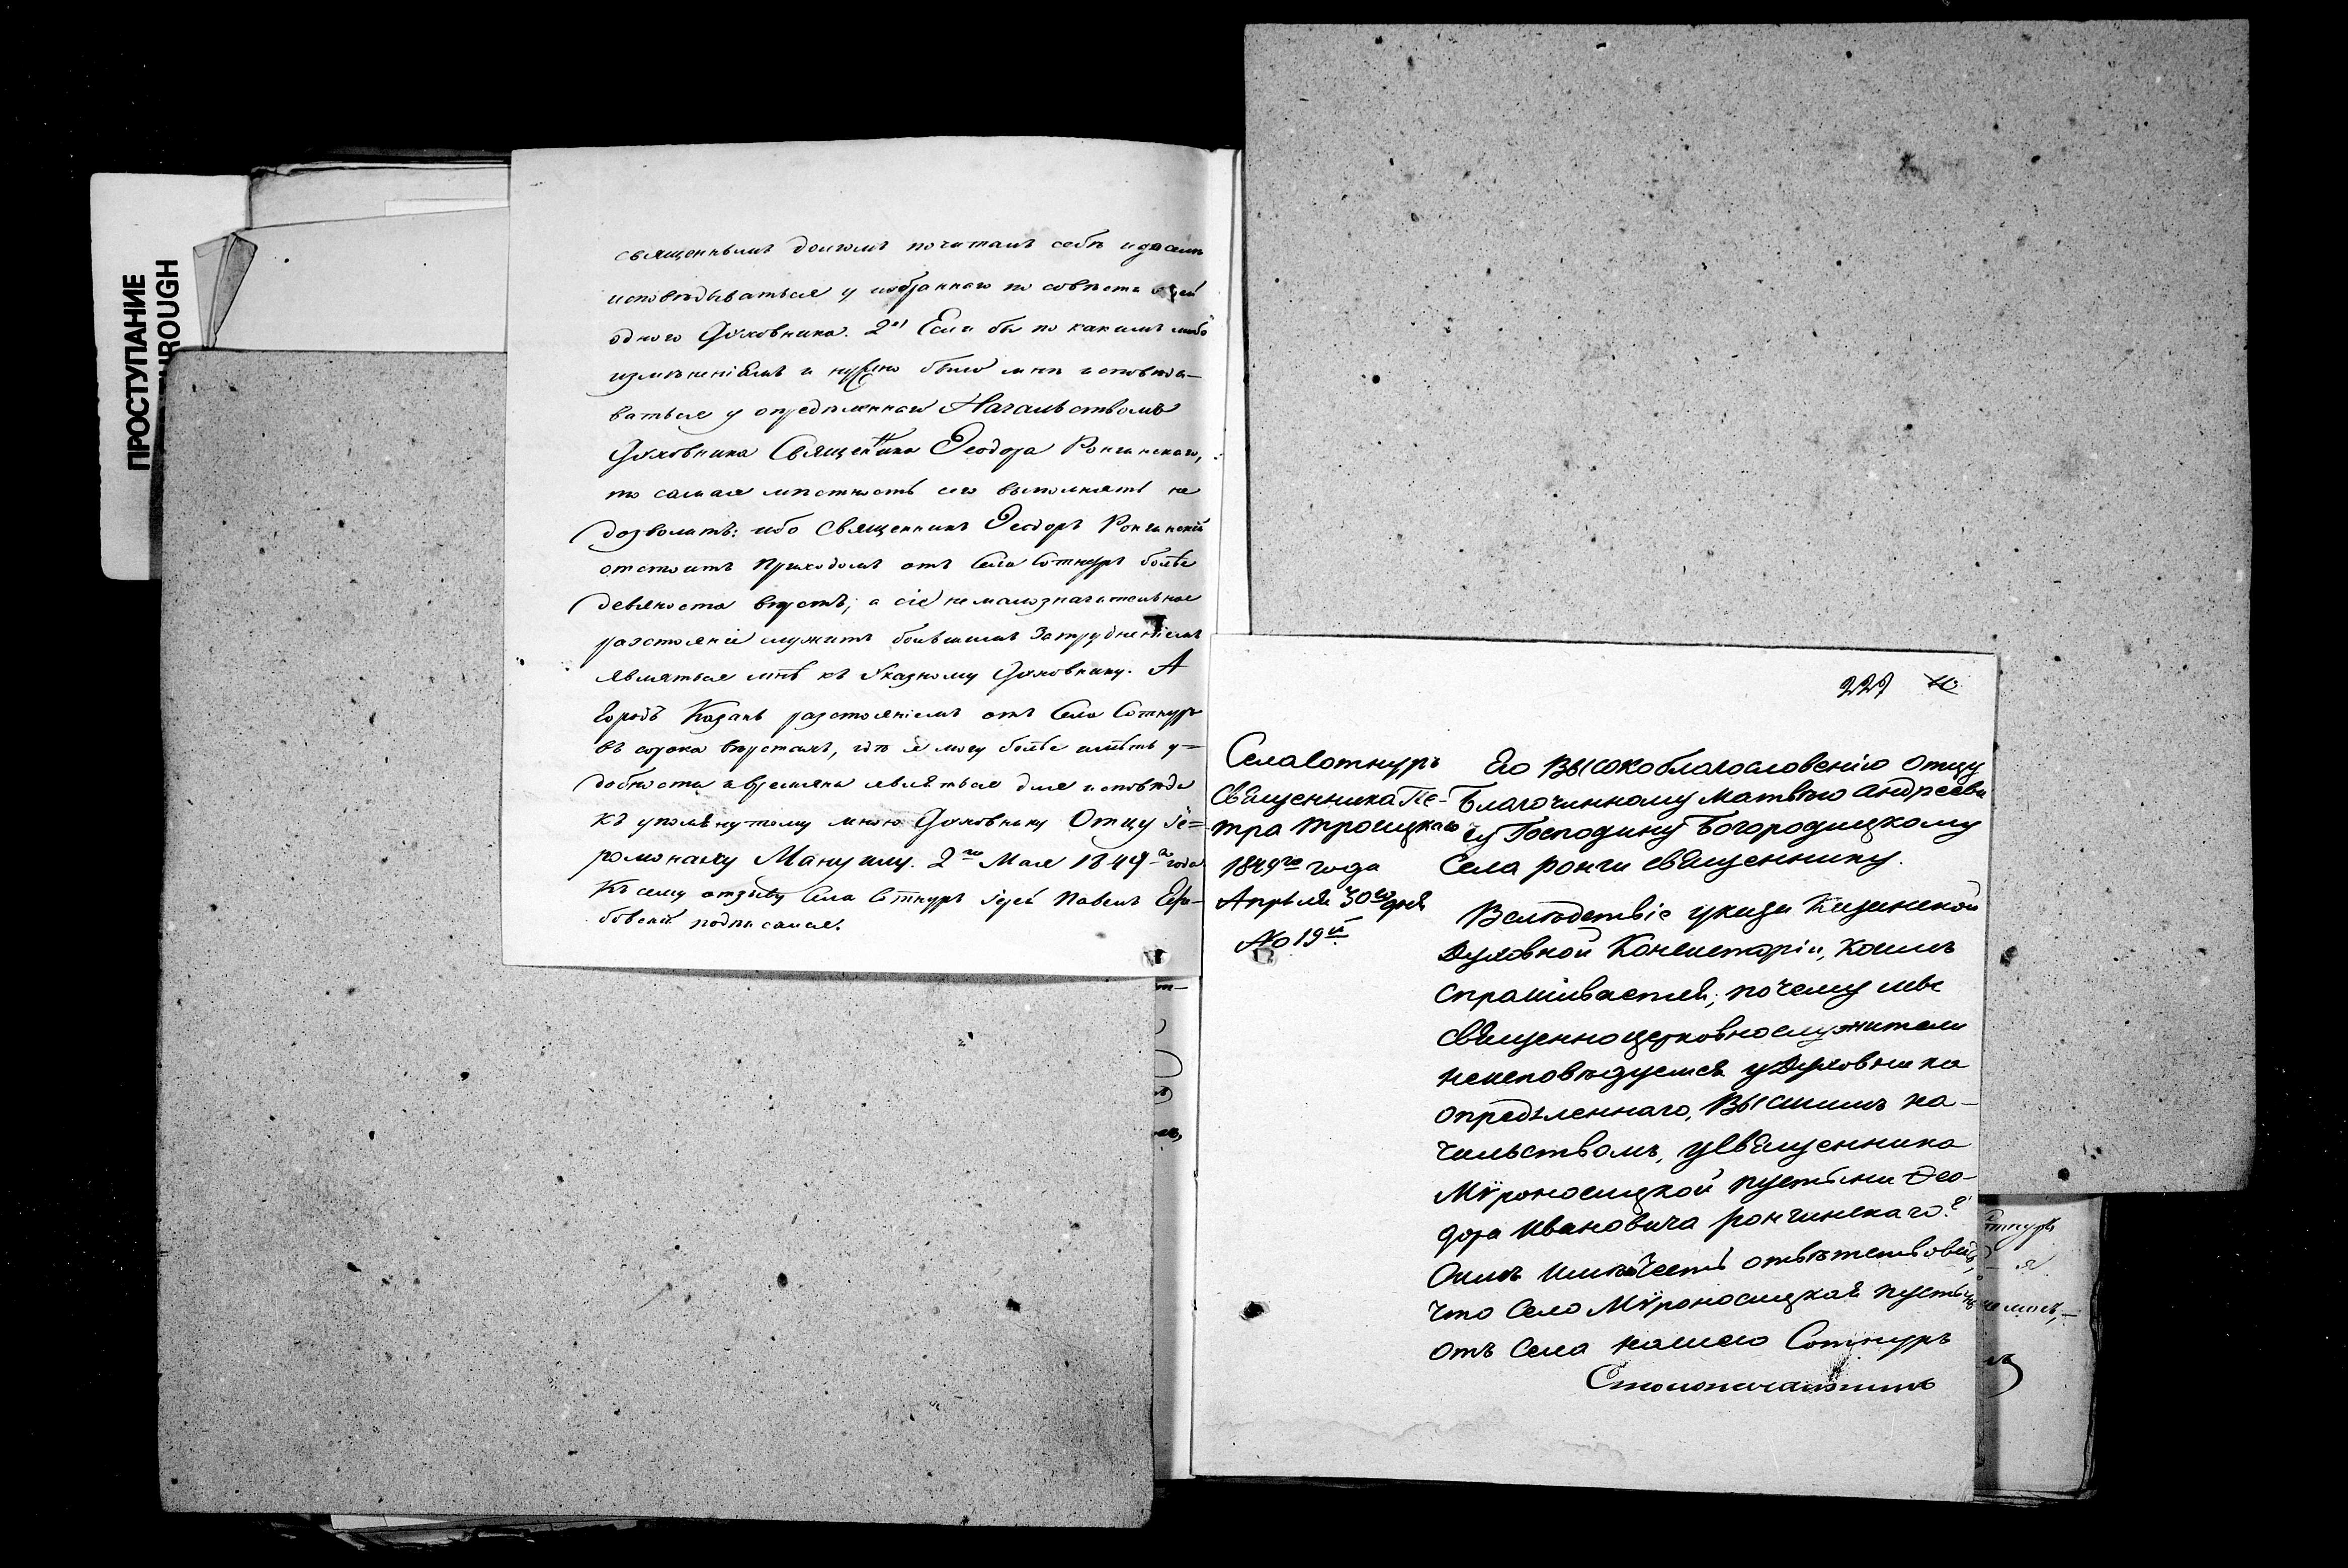 ПРОСТУПАНИЕ
ROUGH
священнымъ долгомъ почитаемъ себѣ
исповѣдываться у избраннаго по совѣсти своей
одного Духовника. 2е) Если бы по какимъ либо
измѣненіямъ и нужно было мнѣ исповѣды-
ваться у опредѣленнаго Начальствомъ
Духовника Священника Ѳеодора Рончинскаго,
то самая мѣстность сего выполнять не
дозволитъ: ибо Священникъ Ѳеодоръ Рончинскій
отстоитъ Приходомъ отъ Села Сотнуръ болѣе
девяноста верстъ; а сіе немалозначительное
разстояніе служитъ большимъ затрудненіемъ
являться мнѣ къ Указному Духовнику. А
Городъ Казань разстояніемъ отъ Села Сотнуръ
въ сорока верстахъ, гдѣ я могу болѣе имѣть у=
добности и времяни являться для исповѣди
къ упомянутому мною Духовнику Отцу Іе=
ромонаху Мануилу. 2го Мая 1849го года
Къ сему отзыву Села Сотнуръ Іерей Павелъ
подписался.
229
Села Сотнуръ
Священника Пе-
тра Троицкаго
1849го года
Апрѣля 30го дня
№ 19й
Его Высокоблагословенію Отцу
Благочинному Матвѣю Андрееви
чу Господину Богородицкому
Села Ронги священнику.
Вслѣдствіе указа Казанской
Духовной Консисторіи, коимъ
спрашивается; почему мы
священноцерковнослужители
неисповѣдуемся у Духовника
опредѣленнаго, Высшимъ на-
чальствомъ, у священника
Мѵроносицкой пустыни Ѳео-
дора Ивановича Рончинскаго?
Симъ имѣю честь отвѣтствовать,
что Село Мѵроносицкая пустынь
отъ Села нашего Сотнуръ